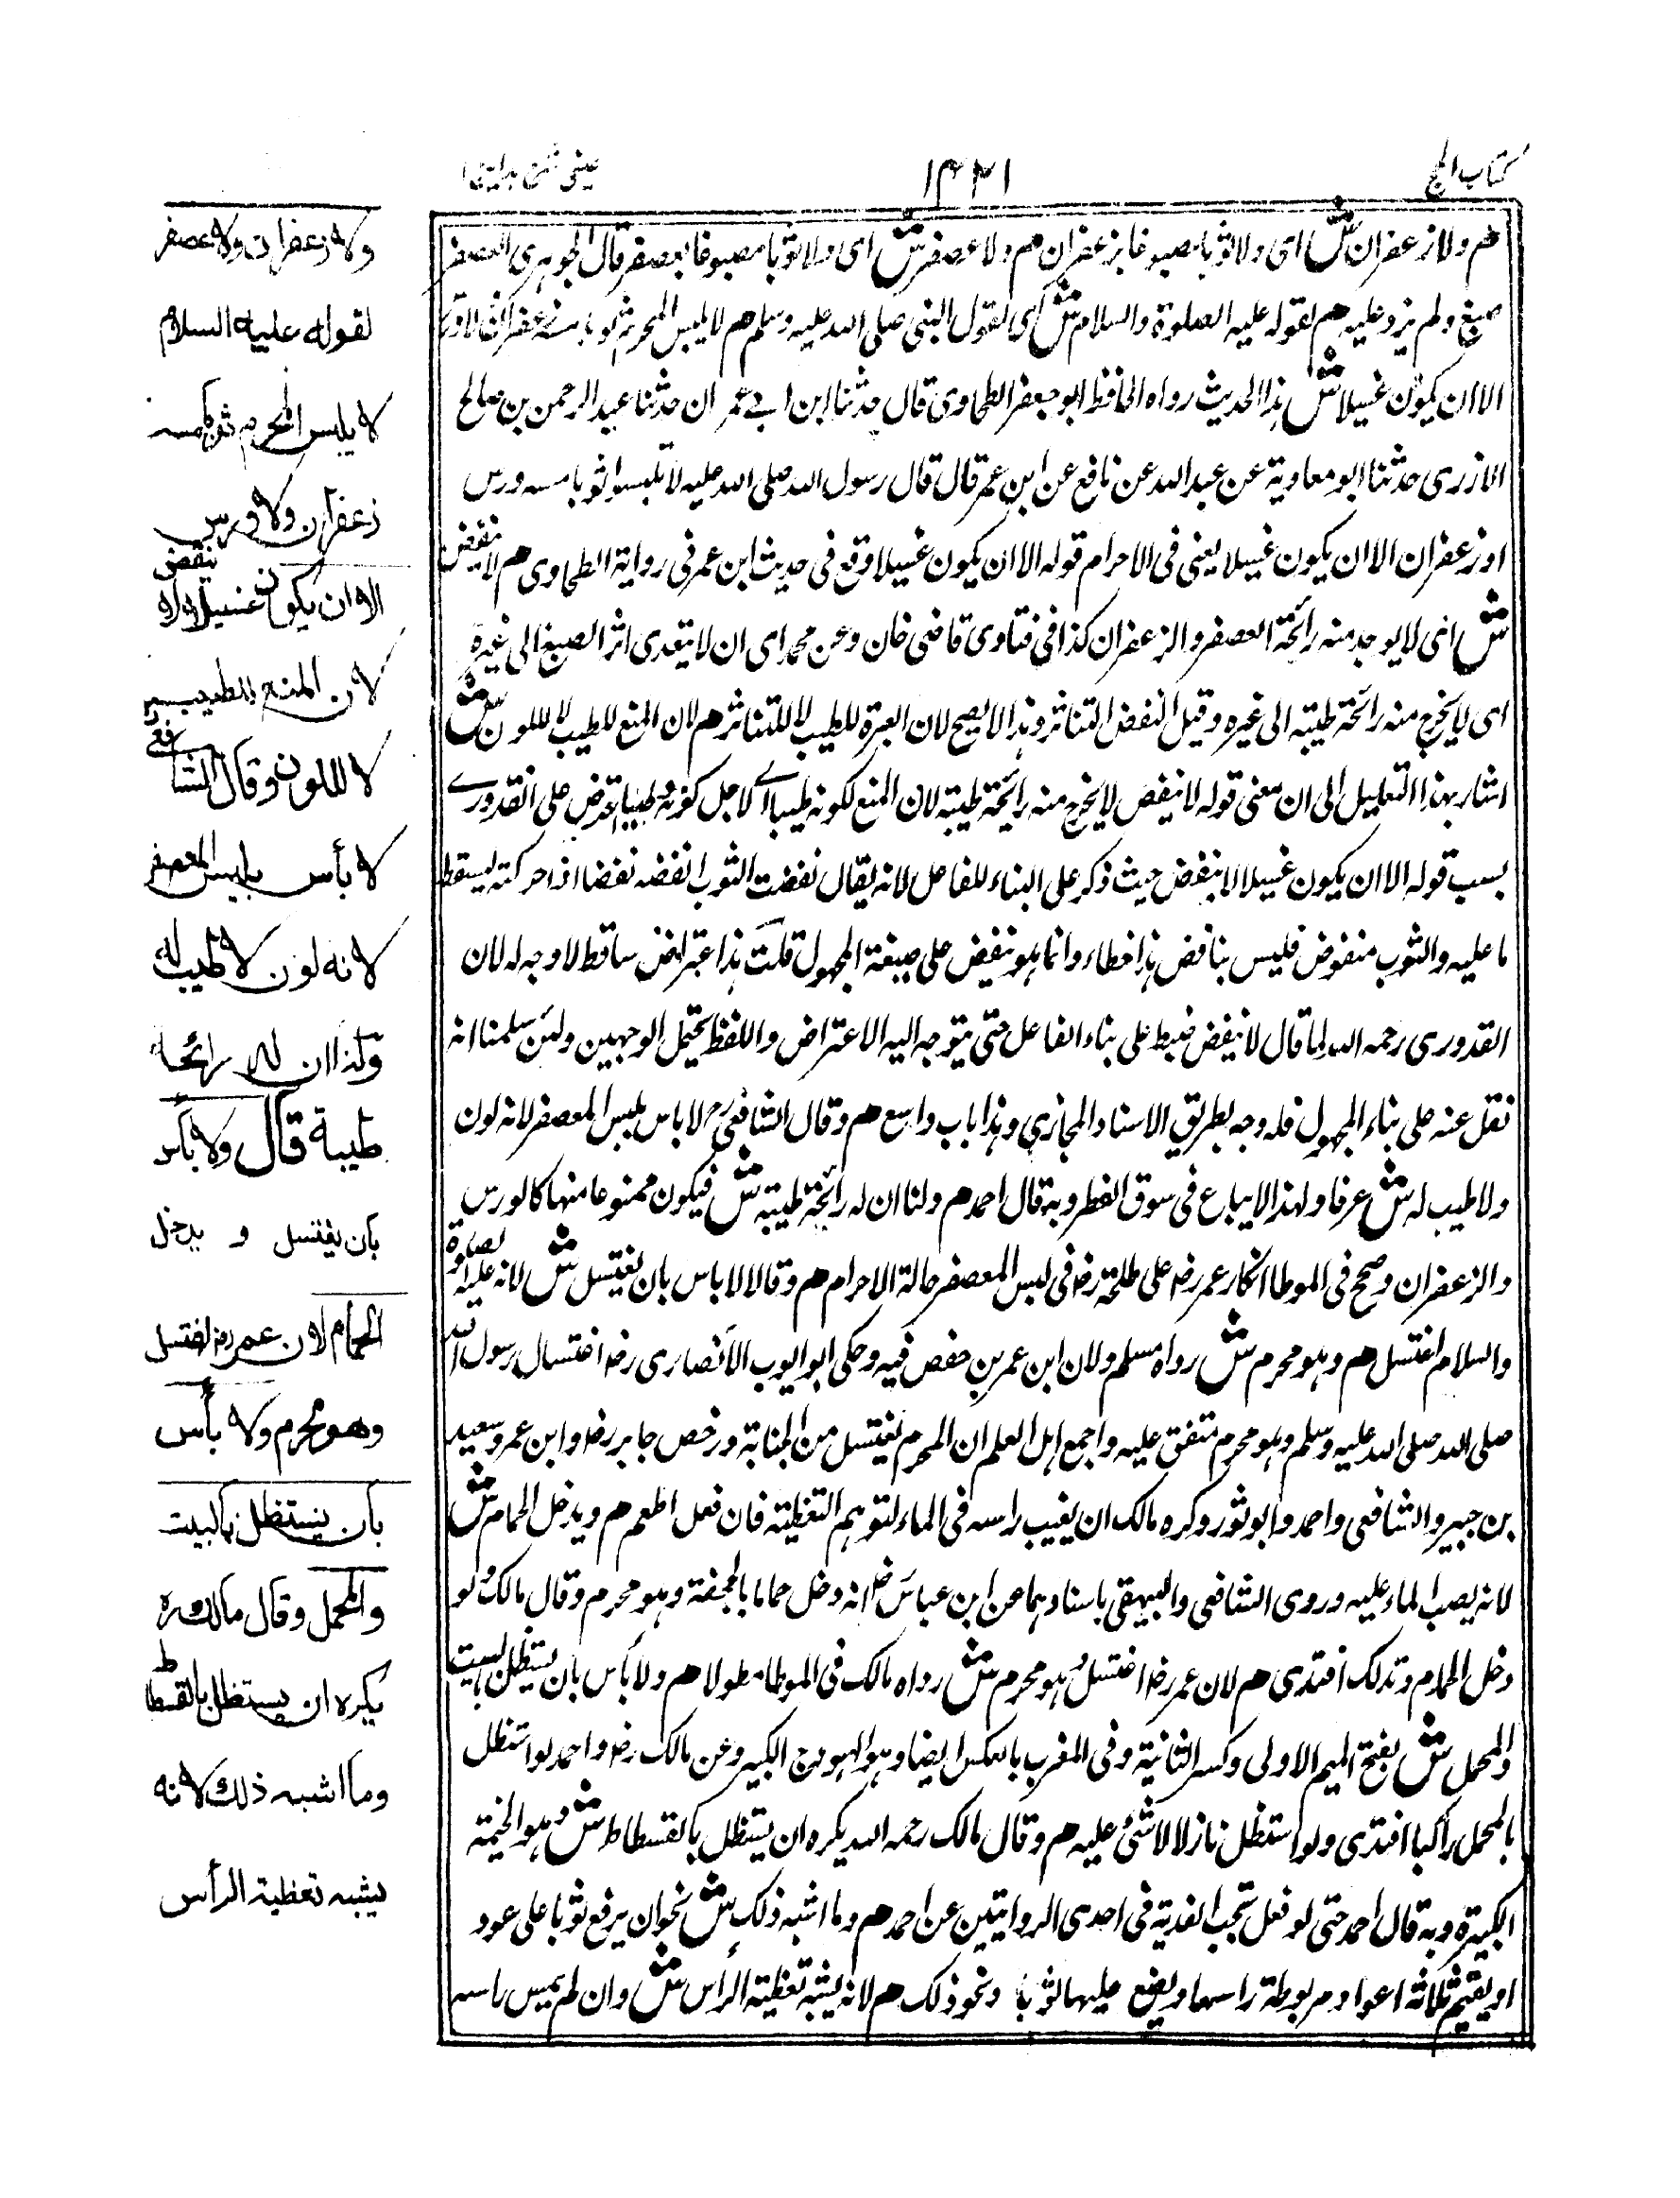 كتاب الحج
١٣٢١
عينى شرح هدايه ج ١
هم ولا زعفران ش اى ولا ثوبا مصبوغا بزعفران هم ولا عصفر ش اى ولا ثوبا مصبوغا بعصفر قال الجوهرى العصفر
صبغ ولم يزد عليه هم لقوله عليه الصلوة والسلام ش اى لقول النبى صلى الله عليه وسلم هم لا يلبس المحرم ثوبا مسه زعفران ولا ورس
الا ان يكون غسيلا ش هذا الحديث رواه الحافظ ابو جعفر الطحاوى قال حدثنا ابن ابے عمران حدثنا عبد الرحمن بن صالح
الازرى حدثنا ابو معاوية عن عبد الله عن نافع عن ابن عمر قال قال رسول الله صلى الله عليه لا تلبسوا ثوبا مسه ورس
او زعفران الا ان يكون غسيلا يعنى فى الاحرام قوله الا ان يكون غسيلا وقع فى حديث ابن عمر فى رواية الطحاوى هم لا ينفض
ش اى لا يوجد منه رائحة العصفر والزعفران كذا فى فتاوى قاضى خان وعن محمد اى ان لا يتعدى اثر الصبغ الى غيره
اى لا يخرج منه رائحة طيبة الى غيره وقيل النفض التناثر وهذا لا يصح لان العبرة للطيب لا للتناثر هم لان المنع للطيب لا للون ش
اشار بهذا التعليل الى ان معنى قوله لا ينفض لا يخرج منه رائحة طيبة لان المنع لكونه طيبا اے لاجل كونه طيبا اعترض على القدورے
بسبب قوله الا ان يكون غسيلا لا ينفض حيث ذكر على البناء للفاعل لانه يقال نفضت الثوب انفضه نفضا اذا حركته ليسقط
ما عليه والثوب منفوض فليس بنافض هذا خطاء وانما هو ينفض على صيغة المجهول قلت هذا اعتراض ساقط لا وجه له لان
القدورى رحمه الله لما قال لا ينفض ضبط على بناء الفاعل حتى يتوجه اليه الاعتراض واللفظ يحتمل الوجهين ولئن سلمنا انه
نقل عنه على بناء المجهول فله وجه بطريق الاسناد المجازى وهذا باب واسع هم وقال الشافعى رح لا باس بلبس المعصفر لانه لون
ولا طيب له ش عرفا ولهذا لا يباع فى سوق العطر وبه قال احمد هم ولنا ان له رائحة طيبة ش فيكون ممنوعا منها كالورس
والزعفران وصح فى الموطا انكار عمر رضه على طلحة رضه فى لبس المعصفر حالة الاحرام هم وقالا لا باس بان يغتسل ش لانه عليه الصلوة
والسلام اغتسل هم وهو محرم ش رواه مسلم ولان ابن عمر بن حفص فيه وحكى ابو ايوب الانصارى رضه اغتسال رسول الله
صلى الله صلى الله عليه وسلم وهو محرم متفق عليه واجمع اهل العلم ان المحرم يغتسل من الجنابة ورخص جابر رضه وابن عمر وسعيد
بن جبير والشافعى واحمد وابو ثور وكره مالك ان يغيب راسه فى الماء لتوهم التغطية فان فعل اطعم هم ويدخل الحمام ش
لانه يصب الماء عليه وروى الشافعى والبيهقى باسنادهما عن ابن عباس رضه انه دخل حماما بالجحفة وهو محرم وقال مالك ولو
دخل الحمام وتدلك افتدى هم لان عمر رضه اغتسل وهو محرم ش رواه مالك فى الموطا مطولا هم ولا بأس بان يستظل بالبيت
والمحمل ش بفتح الميم الاولى وكسر الثانية وفى المغرب بالعكس ايضا وهو الهودج الكبير وعن مالك رضه واحمد لو استظل
بالمحمل راكبا افتدى ولو استظل نازلا لا شئ عليه هم وقال مالك رحمه الله يكره ان يستظل بالفسطاط ش وهو الخيمة
الكبيرة وبه قال احمد حتى لو فعل تجب الفدية فى احدى الروايتين عن احمد هم وما اشبه ذلك ش نحو ان يرفع ثوبا على عود
او يقيم ثلاثة اعواد مربوطة راسها ويضع عليها ثوبا ونحو ذلك هم لانه يشبه تغطية الرأس ش وان لم يمس راسه
ولا زعفران ولا عصفر
لقوله عليه السلام
لا يلبس المحرم ثوبا مسه
زعفران ولا ورس
الا ان يكون غسيلا لا ينفض
لان المنع للطيب
لا للون وقال الشافعے
لا بأس بلبس المعصفر
لانه لون لا طيب له
ولنا ان له رائحة
طيبة قال ولا بأس
بان يغتسل و يدخل
الحمام لان عمر رضه اغتسل
وهو محرم ولا بأس
بان يستظل بالبيت
والمحمل وقال مالك ره
يكره ان يستظل بالفسطاط
وما اشبه ذلك لانه
يشبه تغطية الرأس